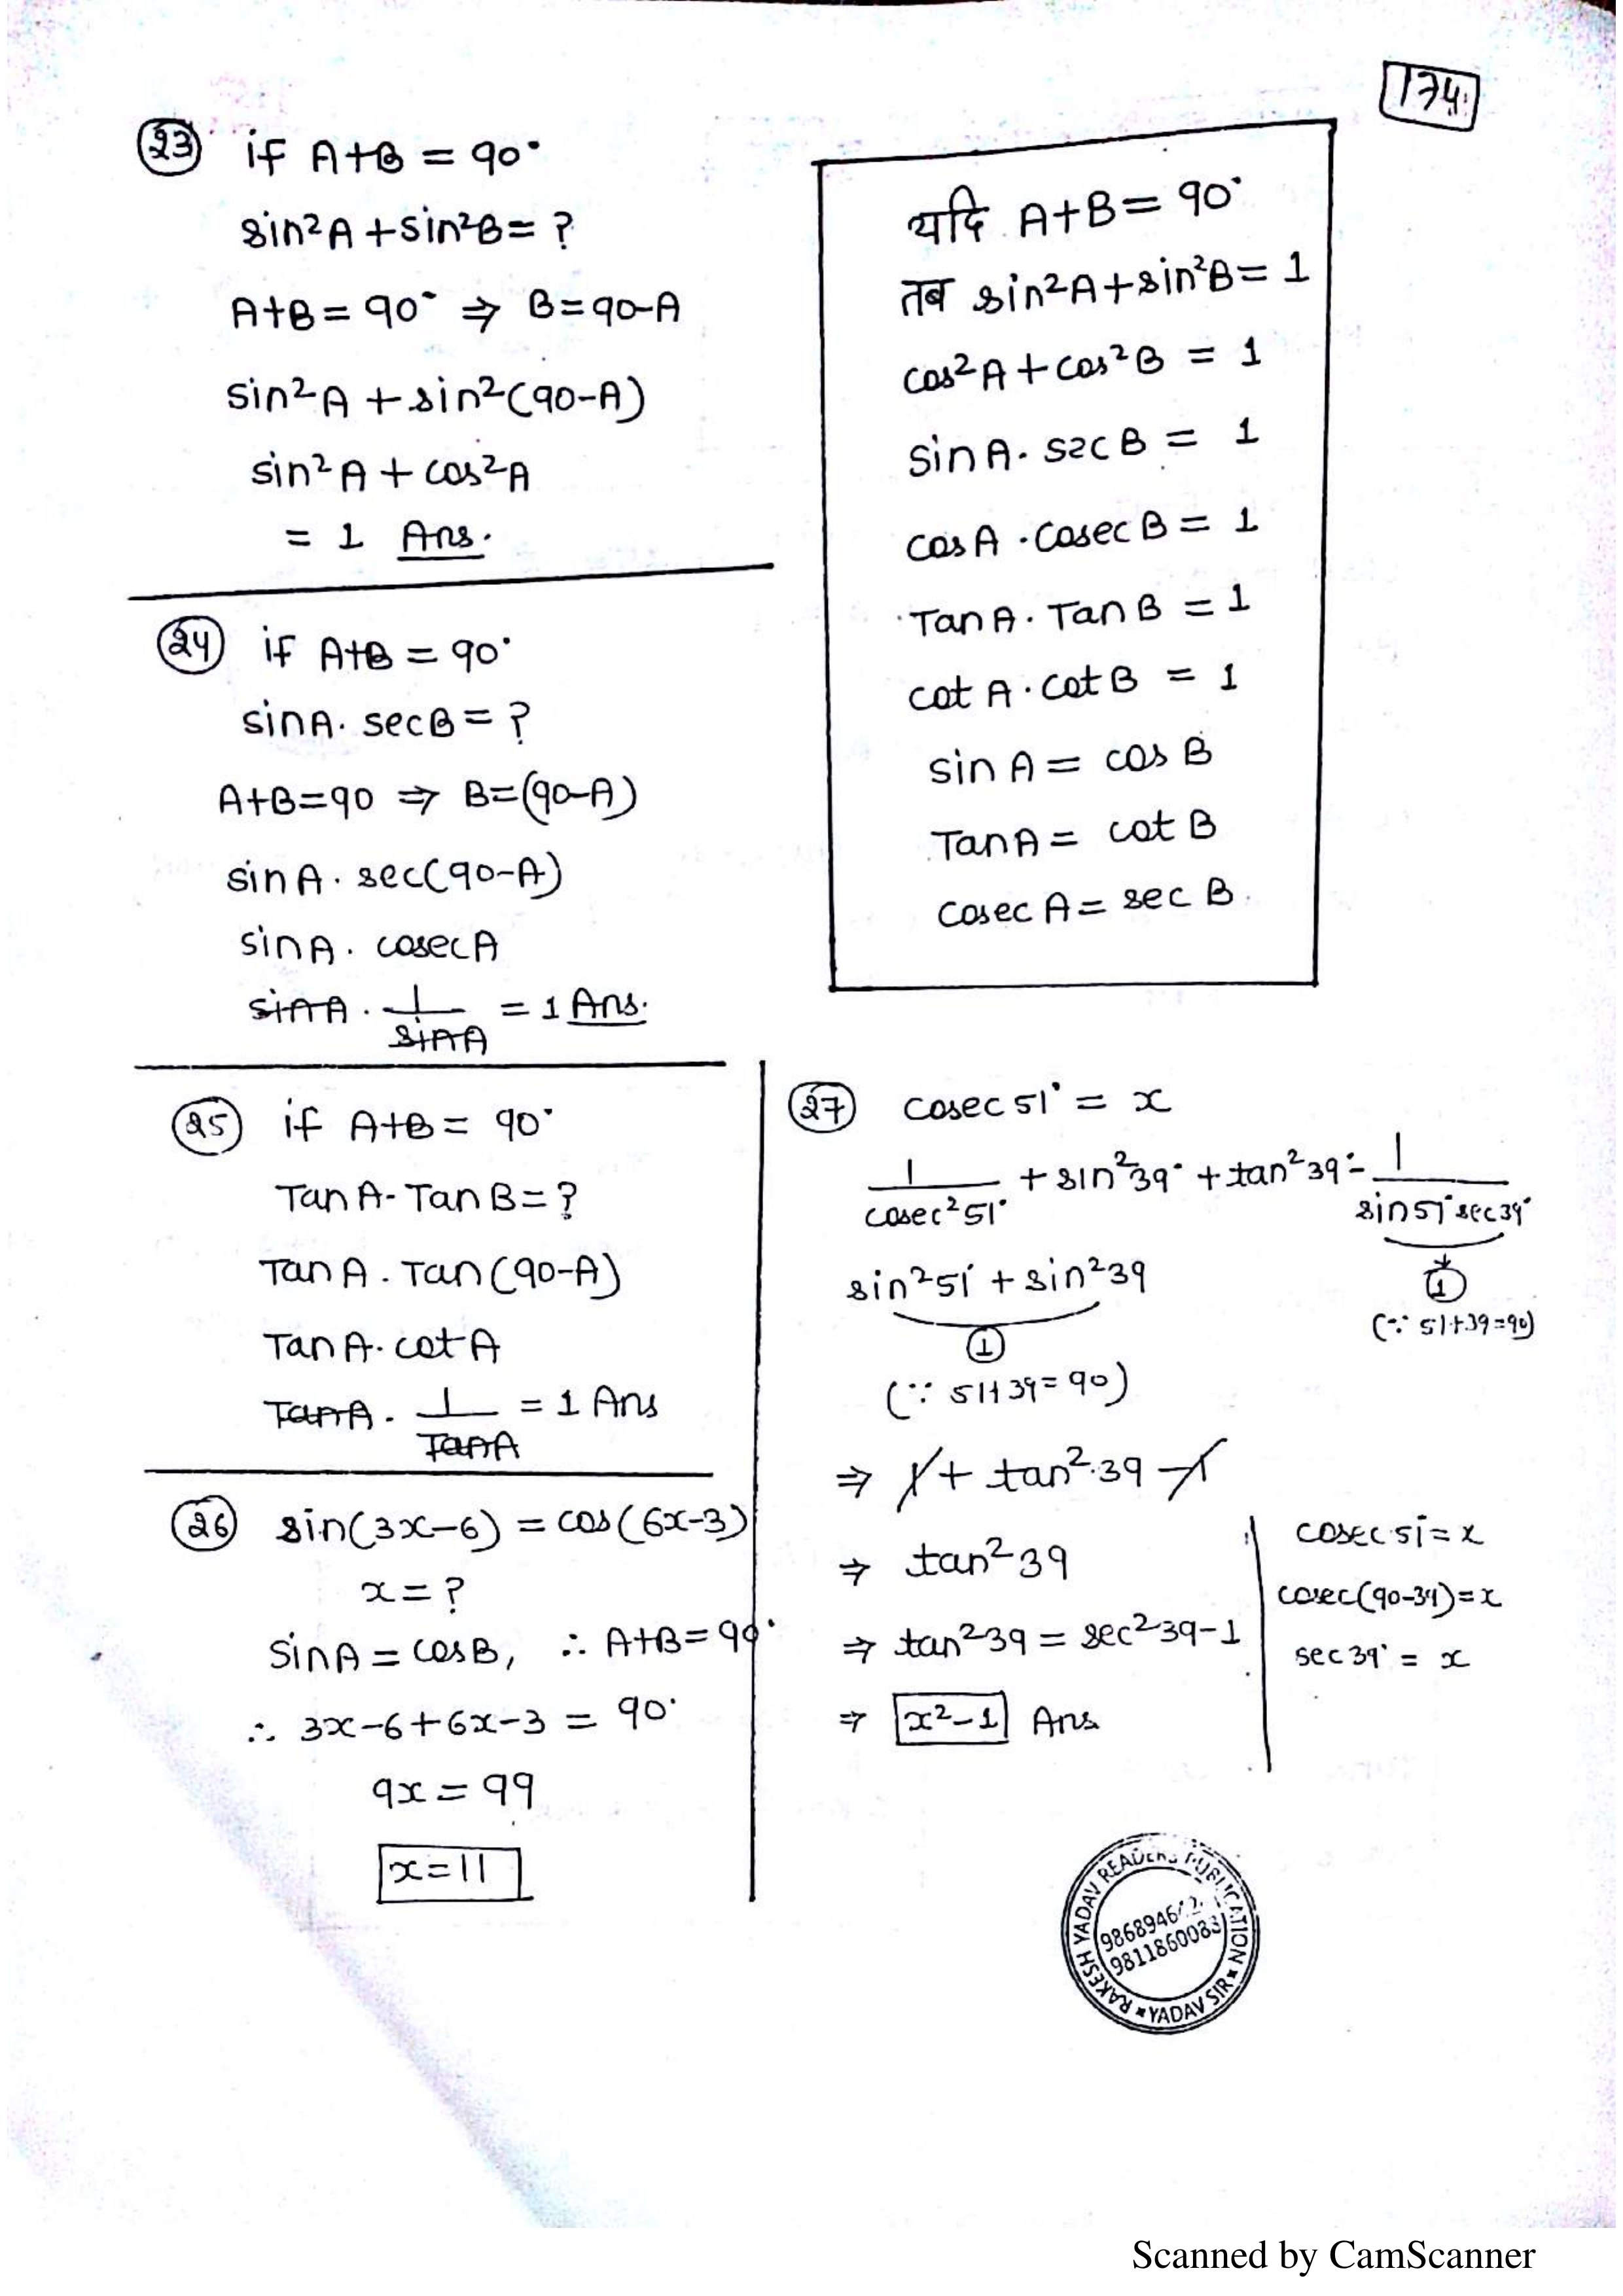 174
23 if A+B = 90°
sin²A + sin²B = ?
A+B = 90° ⇒ B=90-A
sin²A + sin²(90-A)
sin²A + cos²A
= 1 Ans.
यदि A+B = 90°
तब sin²A + sin²B = 1
cos²A + cos²B = 1
sin A · sec B = 1
cos A · cosec B = 1
Tan A · Tan B = 1
cot A · cot B = 1
sin A = cos B
Tan A = cot B
cosec A = sec B
24 if A+B = 90°
sin A · sec B = ?
A+B=90 ⇒ B=(90-A)
sin A · sec(90-A)
sin A · cosec A
sin A · 1/sin A = 1 Ans.
25 if A+B = 90°
Tan A - Tan B = ?
Tan A . Tan (90-A)
Tan A · cot A
Tan A · 1/Tan A = 1 Ans
26 sin(3x-6) = cos(6x-3)
x = ?
sin A = cos B, ∴ A+B=90°
∴ 3x-6+6x-3 = 90°
9x = 99
x = 11
27 cosec 51° = x
1/cosec²51° + sin²39° + tan²39° - 1/sin51° sec39°
sin²51° + sin²39
1
(∵ 51+39=90)
1
(∵ 51+39=90)
⇒ 1 + tan²39 - 1
⇒ tan²39
⇒ tan²39 = sec²39-1
⇒ x²-1 Ans
cosec 51° = x
cosec(90-39) = x
sec 39° = x
RAKESH YADAV READERS PUBLICATION
9811860083
YADAV SIR
Scanned by CamScanner